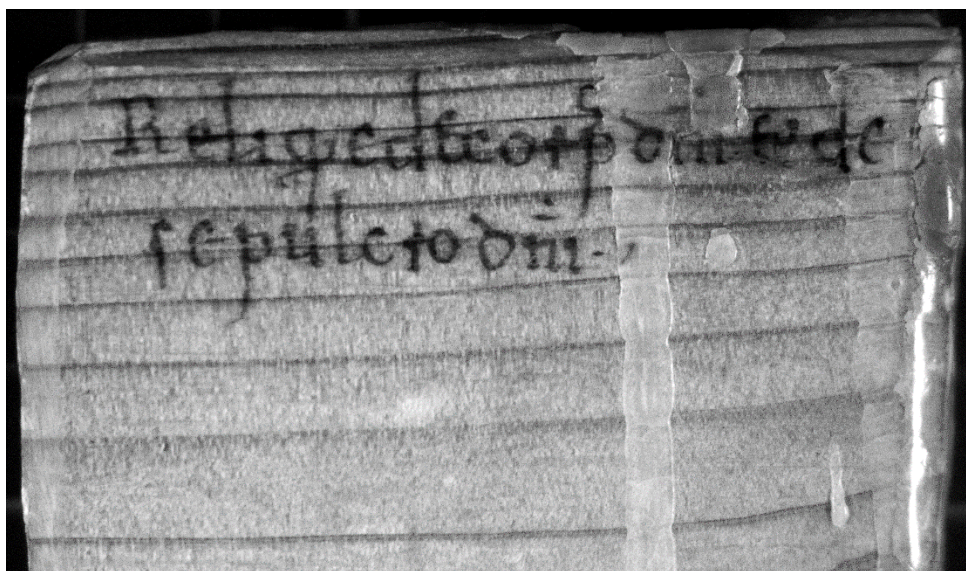 Reliqe de corp̄ dni & de
sepulcro dn̄i.